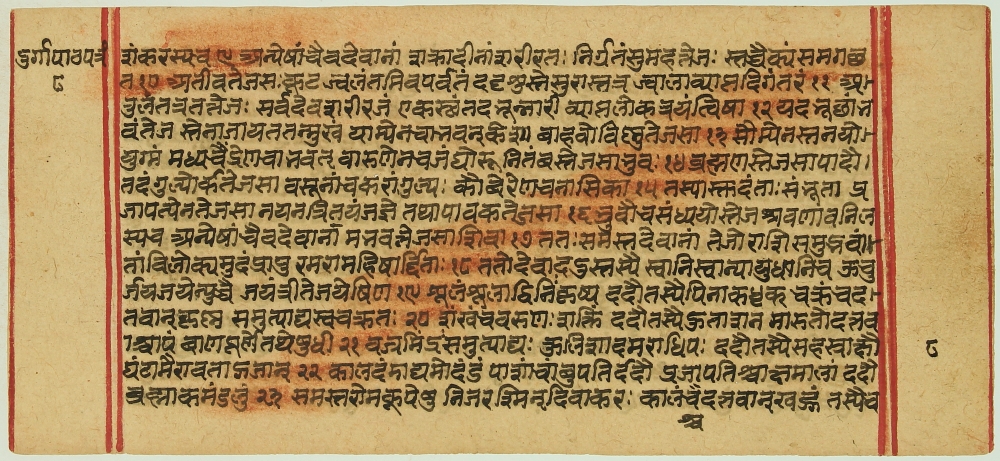 दुर्गापाठपत्रं
८
शंकरस्यच ९ अन्येषांचैवदेवानां शक्रादीनांशरीरतः निर्गतंसुमहत्तेजः स्तच्चैक्यंसमगच्छ
त १० अतीवतेजसःकूटं ज्वलंतमिवपर्वतं ददृशुस्तेसुरास्तत्र ज्वालाव्याप्तदिगंतरं ११ अ
तुलंतत्रतत्तेजः सर्वदेवशरीरजं एकस्थंतदभून्नारी व्याप्तलोकत्रयंत्विषा १२ यदभूछांभ
वंतेज स्तेनाजायततन्मुखं याम्येनचाभवन्केशा बाहवोविष्णुतेजसा १३ सौम्येनस्तनयो
र्युग्मं मध्यंचैंद्रेणचाभवत् वारुणेनचजंघोरू नितंबस्तेजसाभुवः १४ ब्रह्मणस्तेजसापादौ
तदंगुल्योर्कतेजसा वसूनांचकरांगुल्यः कौबेरेणचनासिका १५ तस्यास्तुदंताःसंभूता प्र
जापत्येनतेजसा नयनत्रितयंजज्ञे तथापावकतेजसा १६ भ्रुवौचसंध्ययोस्तेज श्रवणावनिल
स्यच अन्येषांचैवदेवानां संभवस्तेजसांशिवा १७ ततःसमस्तदेवानां तेजोराशिसमुद्भवां
तांविलोक्यमुदंप्रापु रमरामहिषार्दिताः १८ ततोदेवाददुस्तस्यै स्वानिस्वान्यायुधानिच ऊचु
र्जयजयेत्युच्चै जयंतीतेजयैषिण १९ शूलंशूलाद्विनिष्कृष्य ददौतस्यैपिनाकधृक् चक्रंचद
त्तवान्कृष्ण समुत्पाद्यस्वचक्रतः २० शंखंचवरुणःशक्तिं ददौतस्यैहुताशन मारुतोदत्तव
श्चापं बाणपूर्णेतथेषुधी २१ वज्रमिंद्रंसमुत्पाद्यः कुलिशादमराधिपः ददौतस्यैसहस्राक्षौ
घंटामैरावताद्गजात् २२ कालदंडाद्यमोदंडं पाशंचांबुपतिर्ददौ प्रजापतिश्चाक्षमालां ददौ
ब्रह्माकमंडलुं २३ समस्तरोमकूपेषु निजरश्मिन्दिवाकरः कालश्चदत्तवान्खड्गं तस्यैच
श्च
८